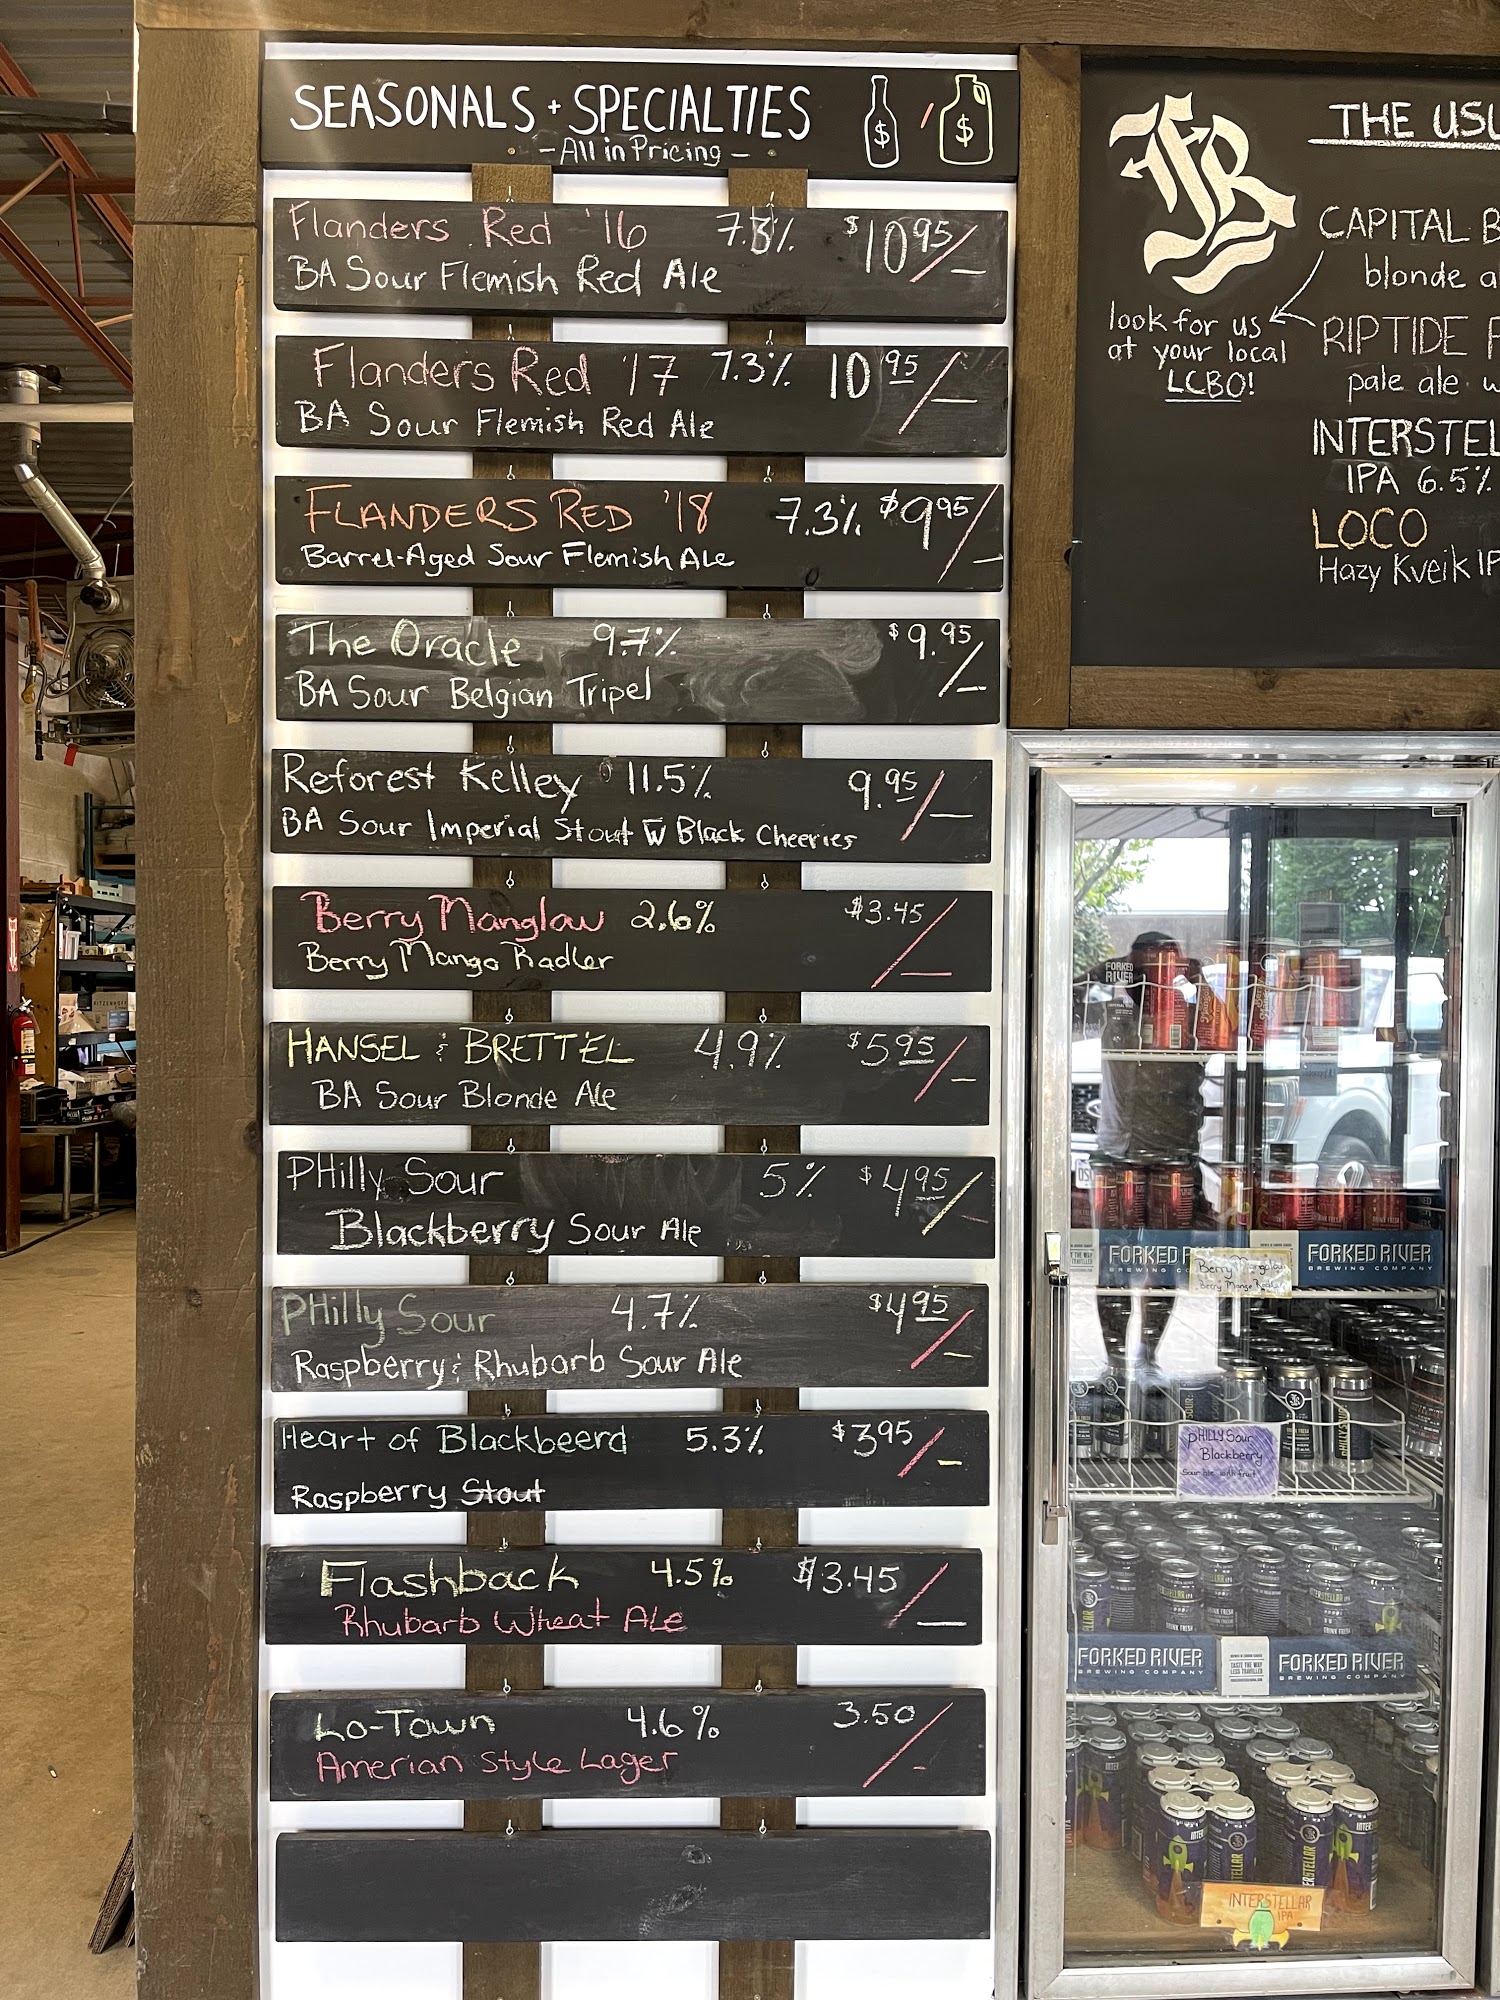 SEASONALS + SPECIALTIES
- All in Pricing -
$ / $
Flanders Red '16 7.3% $10 95/-
BA Sour Flemish Red Ale
Flanders Red '17 7.3% 10 95/-
BA Sour Flemish Red Ale
FLANDERS RED '18 7.3% $9 95/-
Barrel-Aged Sour Flemish Ale
The Oracle 9.7% $9.95/-
BA Sour Belgian Tripel
Reforest Kelley 11.5% 9.95/-
BA Sour Imperial Stout W Black Cheeries
Berry Manglow 2.6% $3.45/-
Berry Mango Radler
HANSEL & BRETTEL 4.9% $5 95/-
BA Sour Blonde Ale
PHilly Sour 5% $4 95/-
Blackberry Sour Ale
PHilly Sour 4.7% $4 95/-
Raspberry & Rhubarb Sour Ale
Heart of Blackbeerd 5.3% $3 95/-
Raspberry Stout
Flashback 4.5% $3.45/-
Rhubarb Wheat Ale
Lo-Town 4.6% 3.50/-
Amerian Style Lager
FRB
look for us
at your local
LCBO!
THE USU
CAPITAL B
blonde a
RIPTIDE P
pale ale w
INTERSTEL
IPA 6.5%
LOCO
Hazy Kveik IP
FORKED RIVER
FORKED R
BREWING
FORKED RIVER
BREWING COMPANY
Berry Manglow
Berry Mango Radler
PHILLY Sour
Blackberry
Sour ale with fruit
FORKED RIVER
BREWING COMPANY
TASTE THE WAY
LESS TRAVELLED
FORKED RIVER
BREWING COMPANY
INTERSTELLAR
IPA